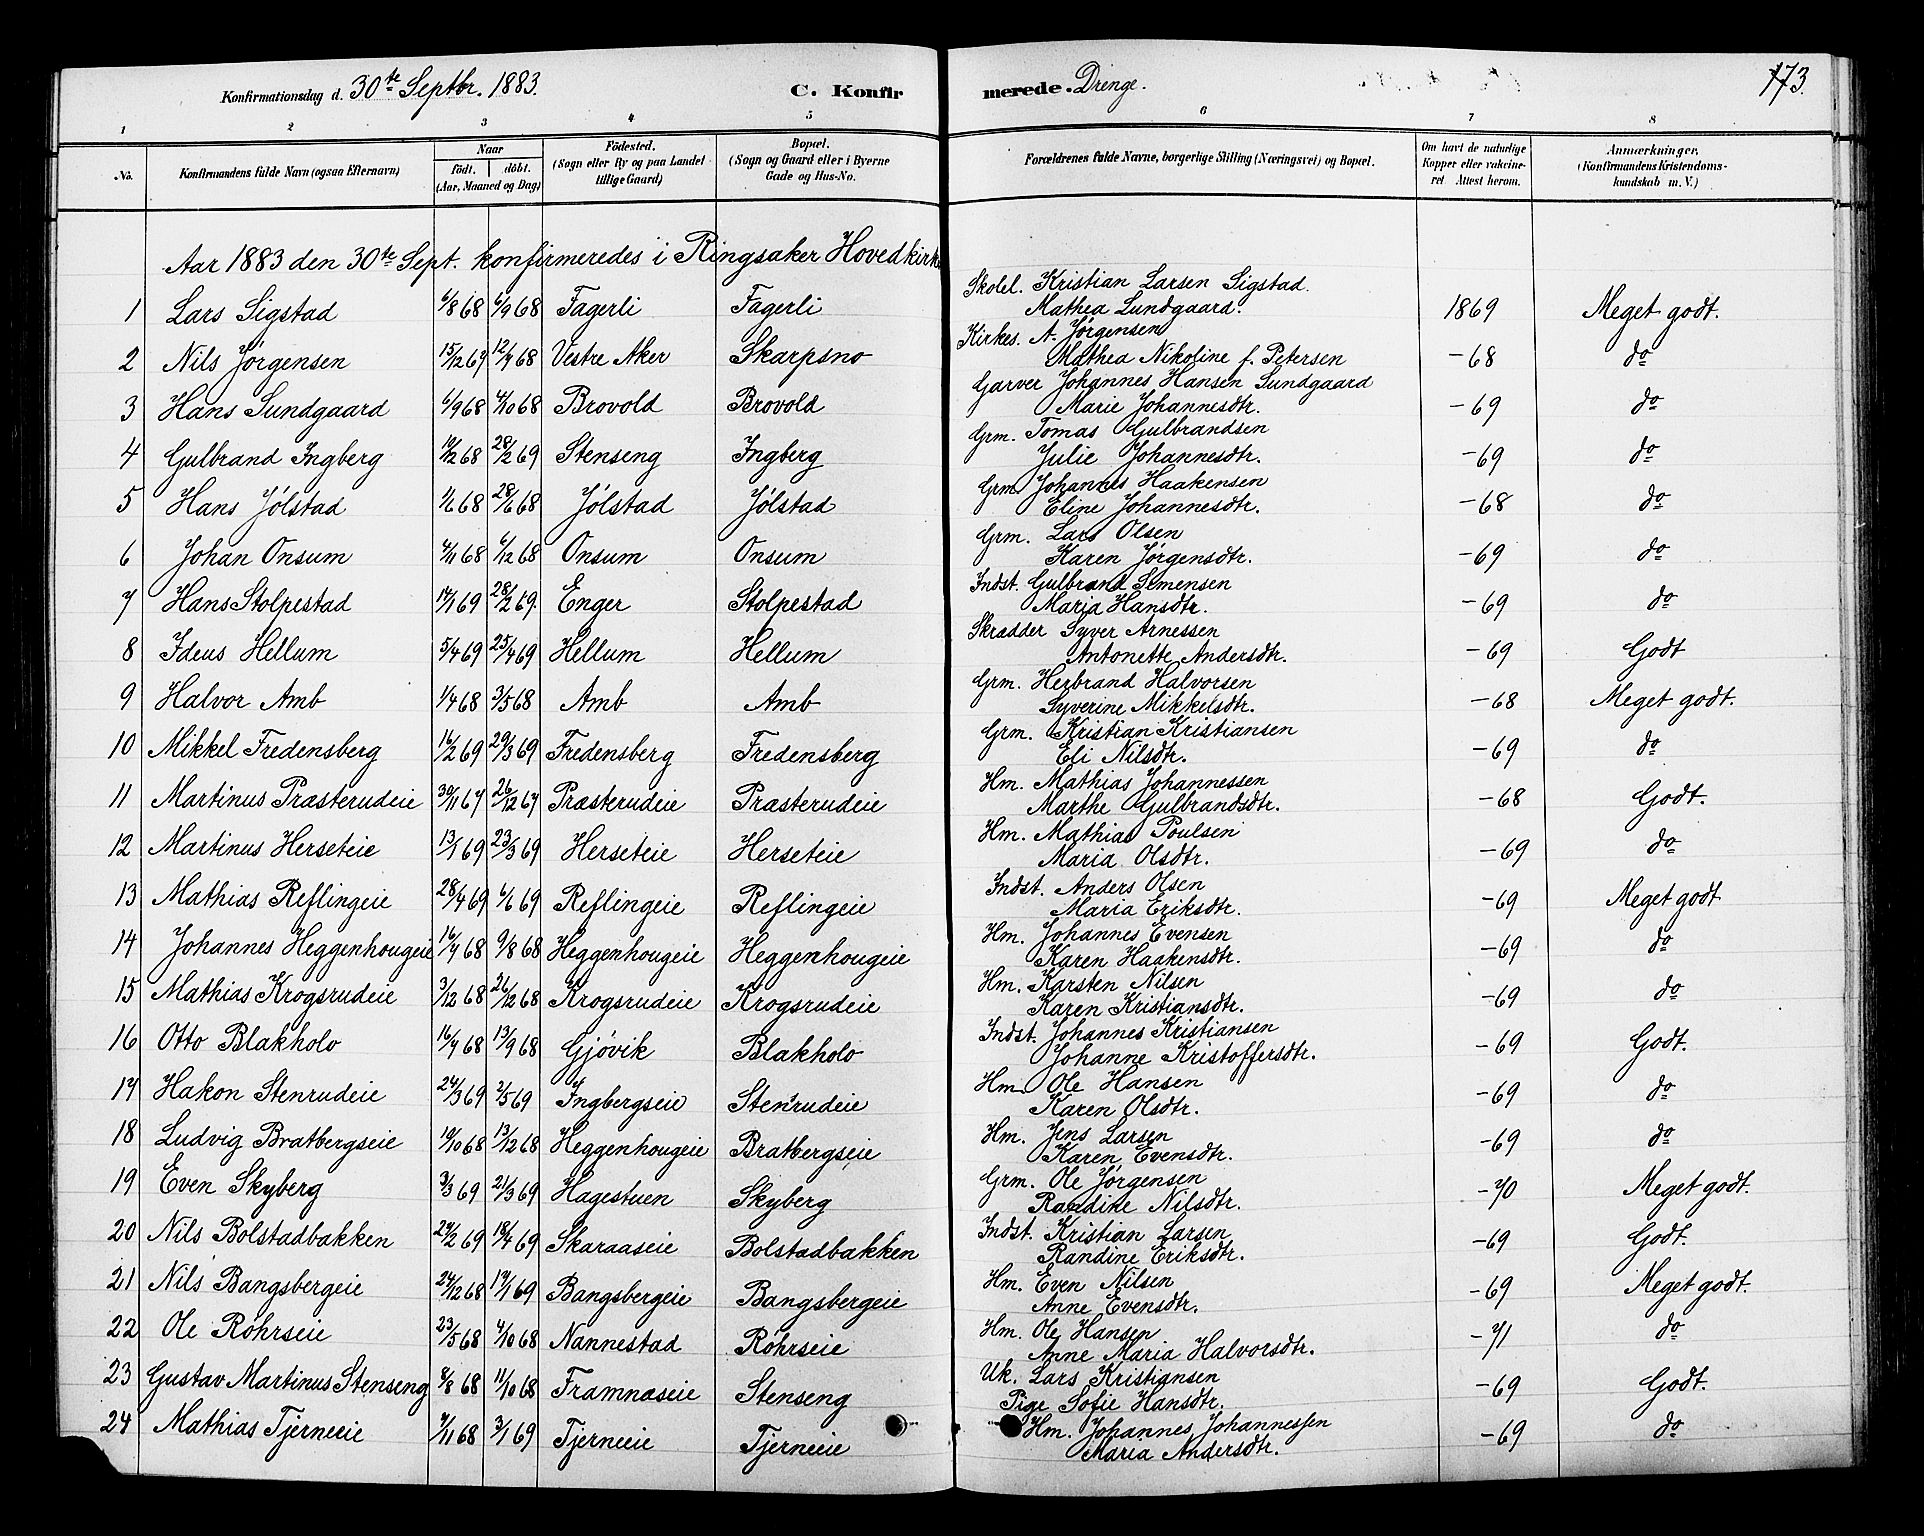 Konfirmationsdag d. 30te Septbr. 1883. C. Konfirmerede. Drenge. 173.
1 2 3 4 5 6 7 8
No. Konfirmandens fulde Navn (ogsaa Efternavn) Naar født. døbt. (Aar, Maaned og Dag) Fødested. (Sogn eller By og paa Landet tillige Gaard) Bopæl. (Sogn og Gaard eller i Byerne Gade og Hus-No. Forældrenes fulde Navne, borgerlige Stilling (Næringsvei) og Bopæl. Om havt de naturlige Kopper eller vaccineret Attest herom. Anmærkninger. (Konfirmandens Kristendomskundskab m. V.)
Aar 1883 den 30te Sept. konfirmeredes i Ringsaker Hovedkirke
1 Lars Sigstad 6/8 68 6/9 68 Fagerli Fagerli Skolel. Kristian Larsen Sigstad. Mathea Lundgaard. 1869 Meget godt.
2 Nils Jørgensen 15/12 67 12/7 68 Vestre Aker Skarpsno Kirkes. A. Jørgensen Mathea Nikoline f. Petersen -68 do
3 Hans Sundgaard 6/9 68 4/10 68 Brovold Brovold Garver Johannes Hansen Sundgaard Marie Johannesdtr. -69 do
4 Gulbrand Ingberg 19/12 68 28/2 69 Stenseng Ingberg Grm. Tomas Gulbrandsen Julie Johannesdtr. -69 do
5 Hans Jølstad 1/6 68 28/6 68 Jølstad Jølstad Grm. Johannes Haakensen Eline Johannesdtr. -68 do
6 Johan Onsum 4/11 68 6/12 68 Onsum Onsum Grm. Lars Olsen Karen Jørgensdtr. -69 do
7 Hans Stolpestad 17/1 69 28/2 69. Enger Stolpestad Indst. Gulbrand Simensen Maria Hansdtr. -69 do
8 Ideus Hellum 5/4 69 25/4 69 Hellum Hellum Skrædder Syver Arnessen Antonette Andersdtr. -69 Godt
9 Halvor Amb 1/4 68 3/5 68 Amb Amb Grm. Herbrand Halvorsen Syverine Mikkelsdtr. -68 Meget godt.
10 Mikkel Fredensberg 16/2 69 29/3 69 Fredensberg Fredensberg Grm. Kristian Kristiansen Eli Nilsdtr. -69 do
11 Martinus Præsterudeie 30/11 67 26/12 67 Præsterudeie Præsterudeie Hm. Mathias Johannessen Marthe Gulbrandsdtr. -68 Godt.
12 Martinus Herseteie 13/1 69 23/3 69 Herseteie Herseteie Hm. Mathias Poulsen Maria Olsdtr. -69 do
13 Mathias Reflingeie 28/4 69 6/6 69 Reflingeie Reflingeie Indst. Anders Olsen Maria Eriksdtr. -69 Meget godt
14 Johannes Heggenhougeie 16/7 68 9/8 68 Heggenhougeie Heggenhougeie Hm. Johannes Evensen Karen Haakensdtr. -69 do
15 Mathias Krogsrudeie 3/12 68 26/12 68 Krogsrudeie Krogsrudeie Hm. Karsten Nilsen Karen Kristiansdtr. -69 do
16 Otto Blakholo 16/7 68 13/9 68 Gjøvik Blakholo Indst. Johannes Kristiansen Johanne Kristoffersdtr. -69 Godt.
17 Hakon Stenrudeie 24/3 69 2/5 69 Ingbergseie Stenrudeie Hm. Ole Hansen Karen Olsdtr. -69 do
18 Ludvig Bratbergseie 19/10 68 13/12 68 Heggenhougeie Bratbergseie Hm. Jens Larsen Karen Evensdtr. -69 do
19 Even Skyberg 3/3 69 21/3 69 Hagestuen Skyberg Grm. Ole Jørgensen Randine Nilsdtr. -70 Meget godt.
20 Nils Bolstadbakken 24/2 69 18/4 69 Skaraaseie Bolstadbakken Indst. Kristian Larsen Randine Eriksdtr. -69 Godt.
21 Nils Bangsbergeie 24/12 68 17/1 69 Bangsbergeie Bangsbergeie Hm. Even Nilsen Anne Evensdtr. -69 Meget godt.
22 Ole Røhrseie 23/5 68 4/10 68 Nannestad Røhrseie Hm. Ole Hansen Anne Maria Halvorsdtr. -71 do
23 Gustav Martinus Stenseng 8/8 68 11/10 68 Framnæseie Stenseng Uk. Lars Kristiansen Pige Sofie Hansdtr. -69 Godt.
24 Mathias Tjerneeie 7/11 68 3/1 69 Tjerneeie Tjerneeie Hm. Johannes Johannessen Maria Andersdtr. -69 do